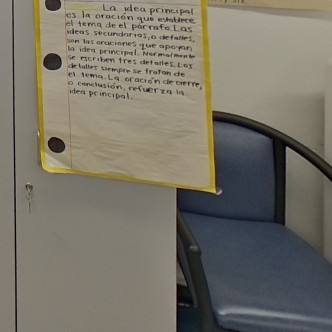 La idea principal
es la oración que establece
el tema de el párrafo. Las
ideas secundarias, o detalles,
son las oraciones que apoyan
la idea principal. Normalmente
se escriben tres detalles. Los
detalles siempre se tratan de
el tema. La oración de cierre,
o conclusión, refuerza la
idea principal.